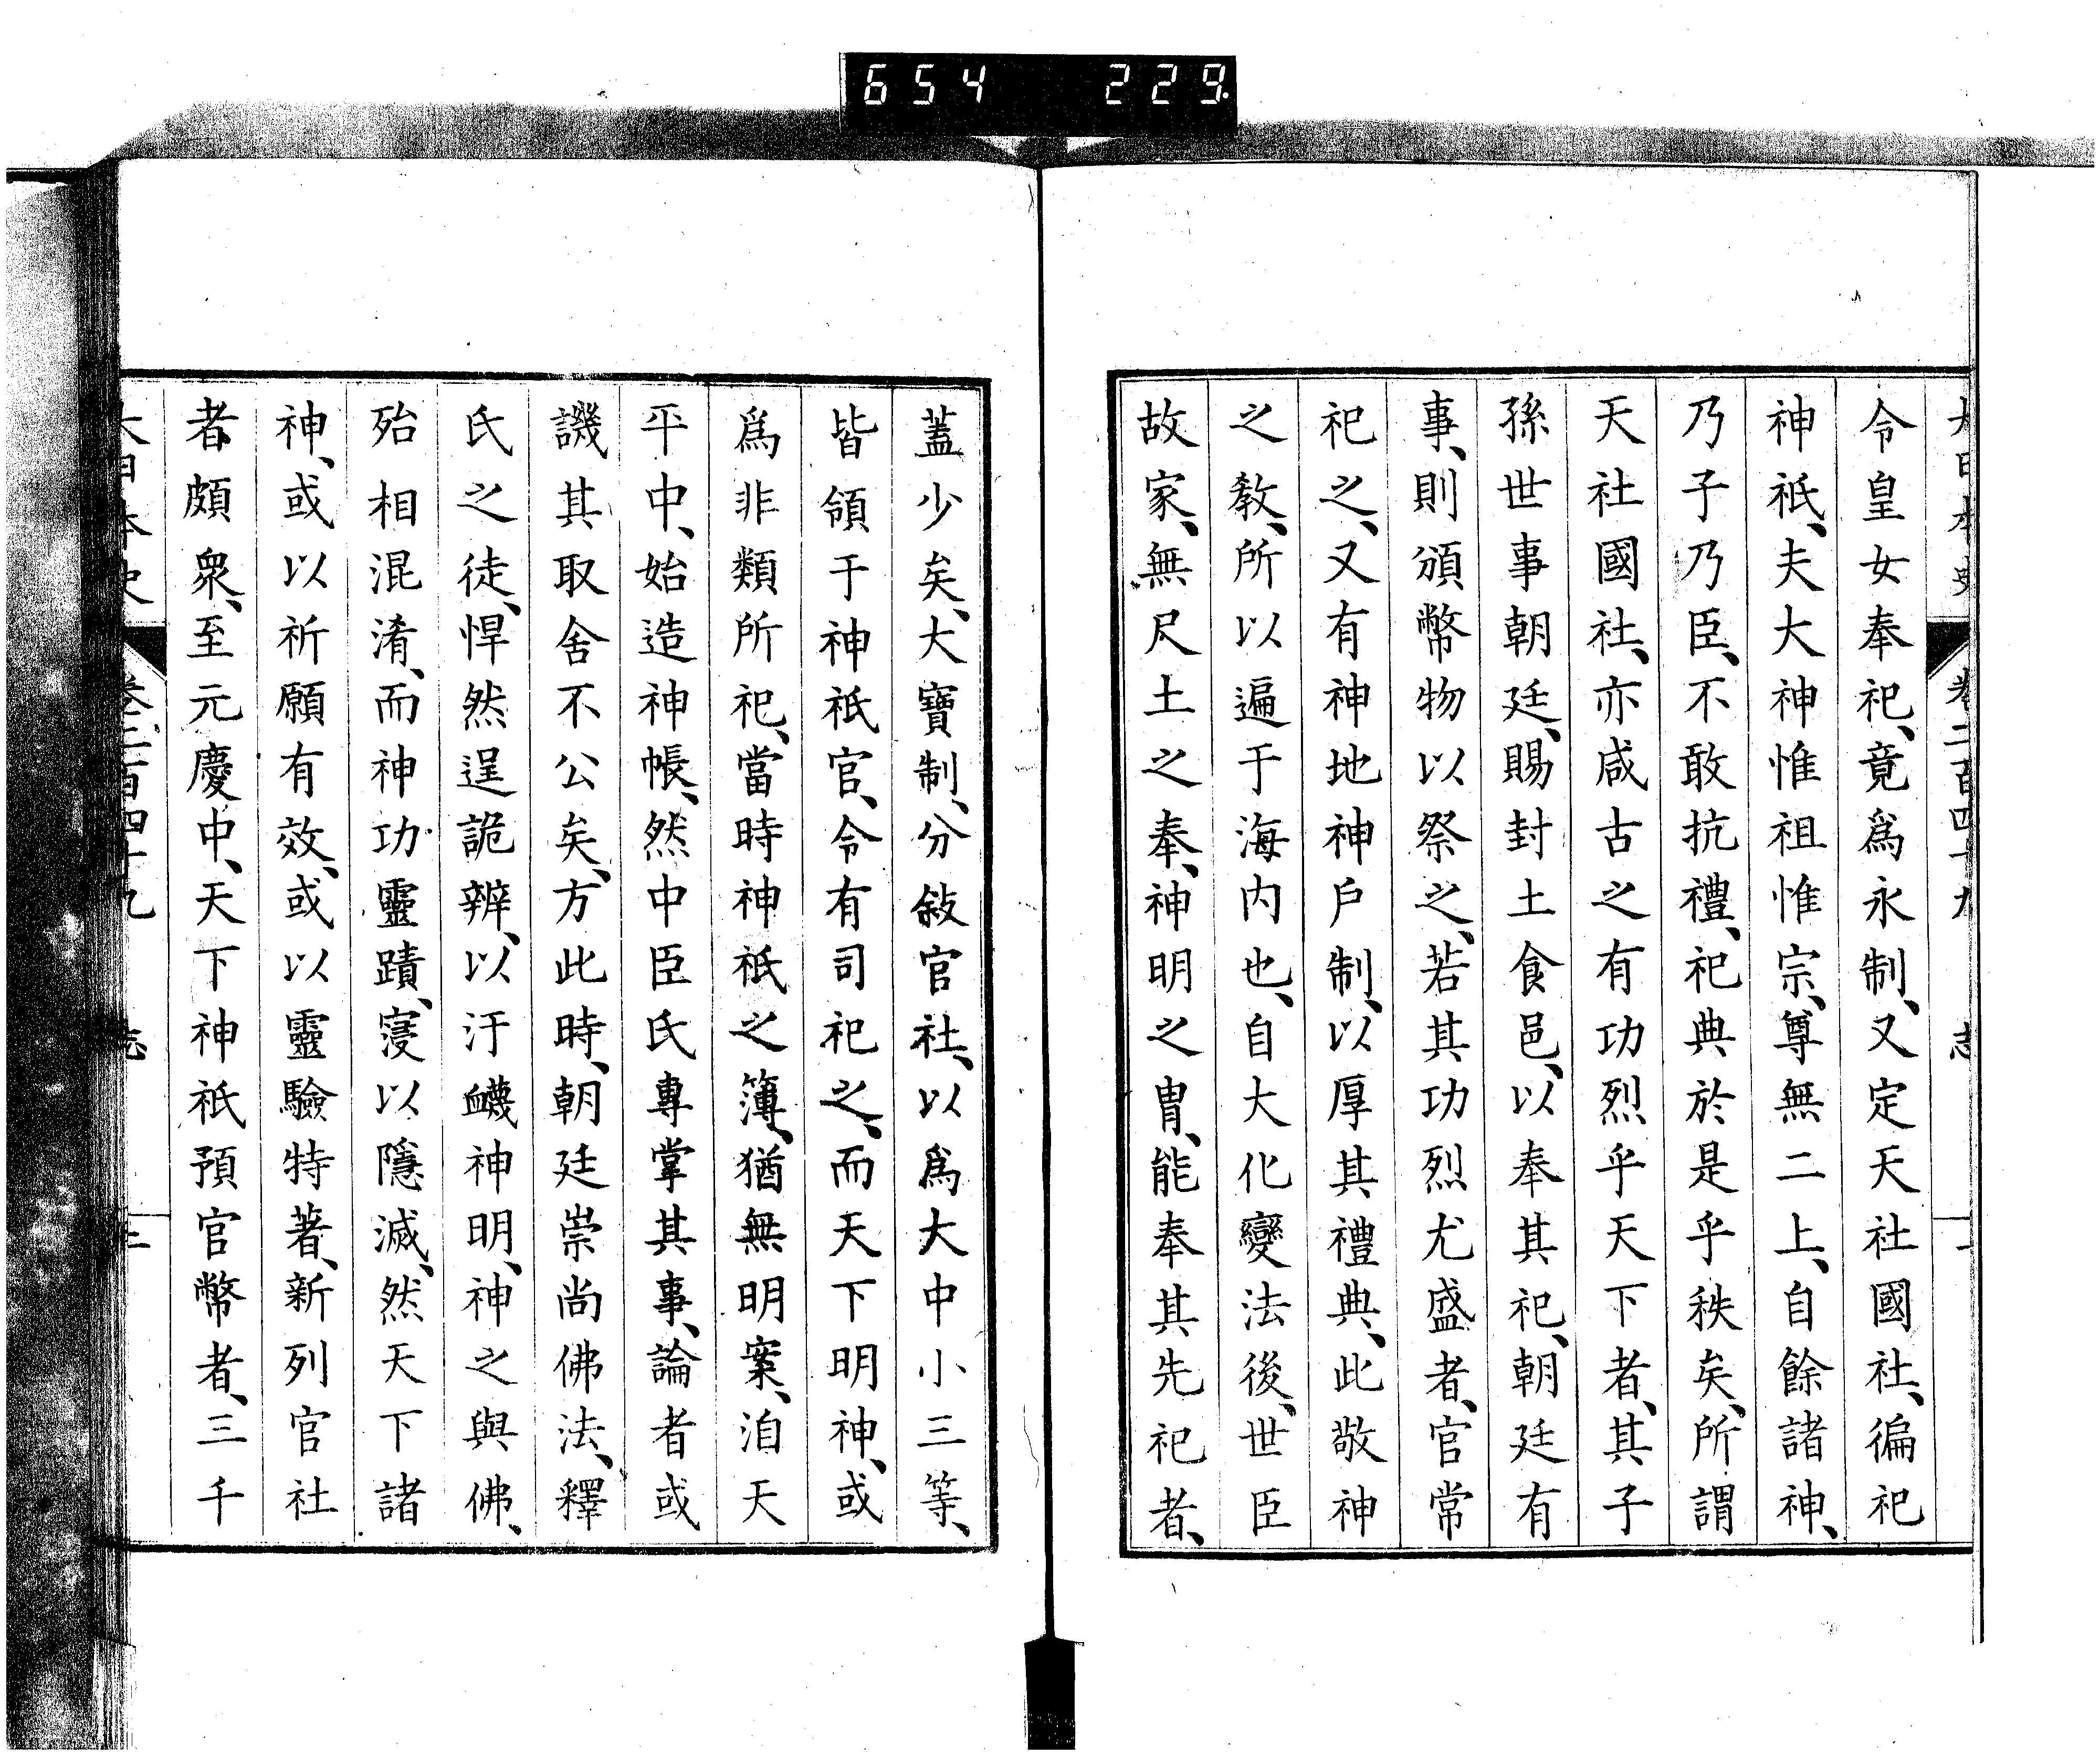 654 229
大日本史 卷二百四十九 志
令皇女奉祀、竟爲永制、又定天社國社、徧祀
神祇、夫大神惟祖惟宗、尊無二上、自餘諸神、
乃子乃臣、不敢抗禮、祀典於是乎秩矣、所謂
天社國社、亦咸古之有功烈乎天下者、其子
孫世事朝廷、賜封土食邑、以奉其祀、朝廷有
事、則頒幣物以祭之、若其功烈尤盛者、官常
祀之、又有神地神戶制、以厚其禮典、此敬神
之教、所以遍于海内也、自大化變法後、世臣
故家、無尺土之奉、神明之冑、能奉其先祀者、
蓋少矣、大寶制、分敍官社、以爲大中小三等、
皆領于神祇官、令有司祀之、而天下明神、或
爲非類所祀、當時神祇之簿、猶無明案、洎天
平中、始造神帳、然中臣氏專掌其事、論者或
譏其取舍不公矣、方此時、朝廷崇尚佛法、釋
氏之徒、悍然逞詭辨、以汙衊神明、神之與佛、
殆相混淆、而神功靈蹟、寖以隱滅、然天下諸
神、或以祈願有效、或以靈驗特著、新列官社
者頗衆、至元慶中、天下神祇預官幣者、三千
大日本史 卷二百四十九 志